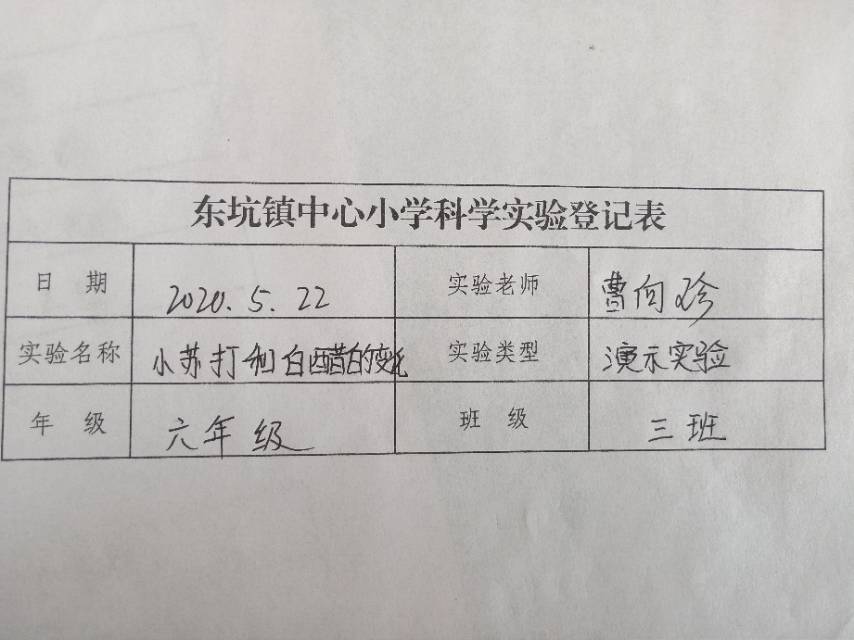 东坑镇中心小学科学实验登记表
日 期 2020.5.22 实验老师 曹向珍
实验名称 小苏打和白醋的变化 实验类型 演示实验
年 级 六年级 班 级 三班